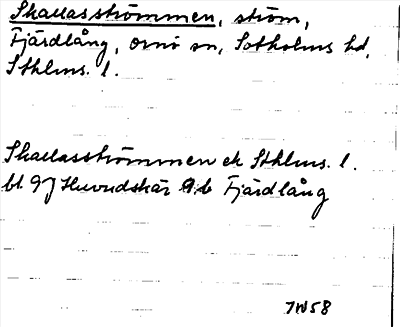 Skallasströmmen, ström,
Fjärdlång, Ornö sn, Sotholms hd,
Sthlms. l.
Skallasströmmen ek Sthlms. l.
bl. 97 Huvudskär 9 b Fjärdlång
IW58